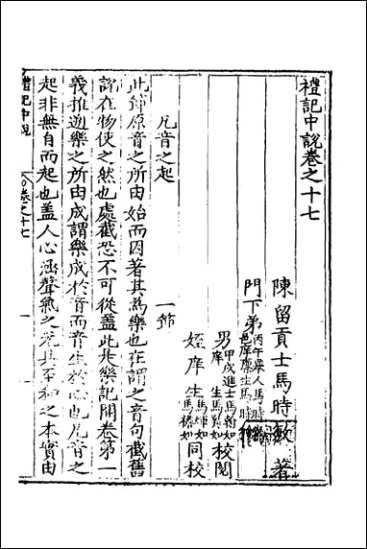 禮記中說卷之十七
陳留貢士馬時敏著
門下弟
男
甲戌進士馬
庠生馬
校閱
姪庠生
馬
馬
同校
凡音之起
一節
此節原音之所由始而因著其為樂也在謂之音句截舊
說在物使之然也處截恐不可從蓋此共樂記開卷第一
義推遡樂之所由成謂樂成於音而音生於心也凡音之
起非無自而起也蓋人心涵聲氣之元具至和之本實由
禮記中說
卷之十七
一